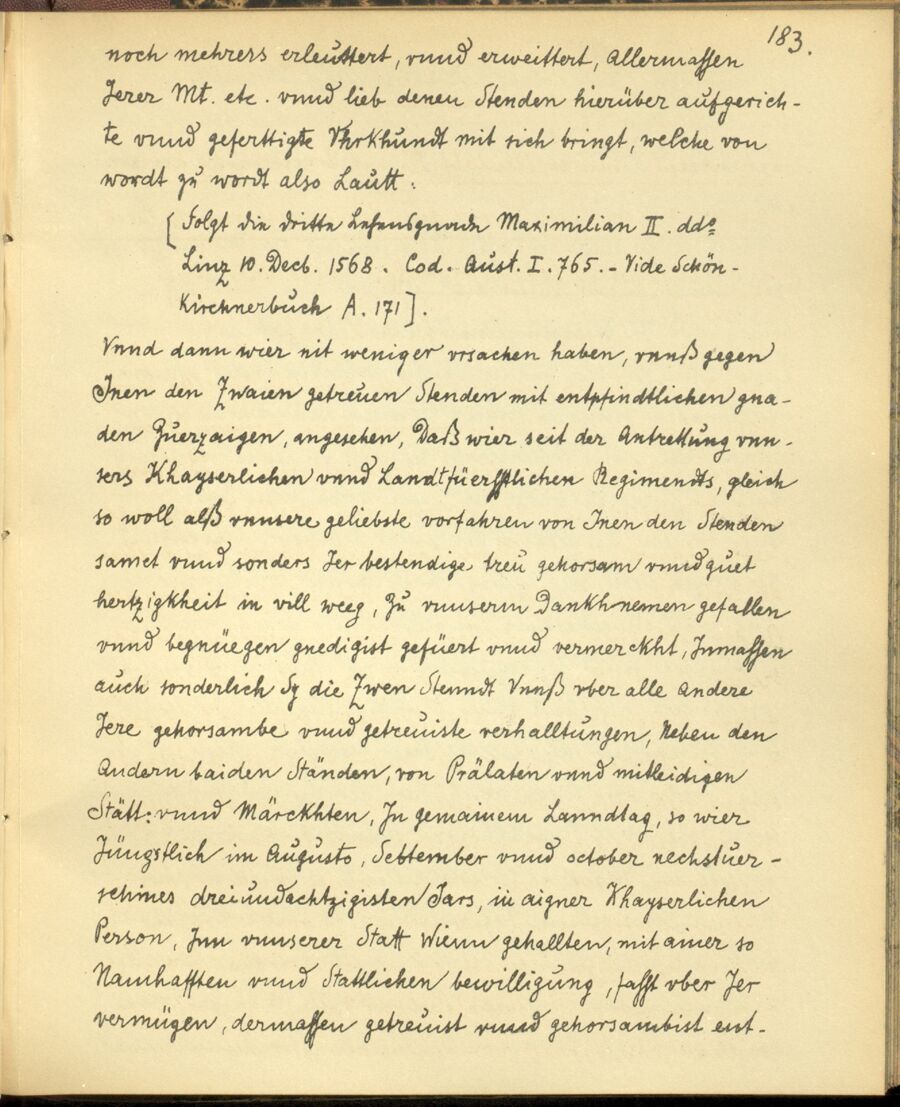 183.
noch mehrers erleüttert, vnnd erweittert, Allermassen
Jerer Mt. etc. vnnd lieb denen Stenden hierüber aufgerich-
te vnnd gefertigte Vhrkhundt mit sich bringt, welche von
wordt zu wordt also Lautt:
[Folgt die dritte Lehensgnade Maximilian II. ddo
Linz 10. Decb. 1568. Cod. Aust. I. 765. - Vide Schön-
Kirchnerbuch A. 171].
Vnnd dann wier nit weniger vrsachen haben, vnnß gegen
Jnen den Zwaien getreuen Stenden mit entpfindtlichen gna-
den Zuerzaigen, angesehen, Daß wier seit der Antrettung vnn-
sers Khayserlichen vnnd Landtfüersstlichen Regimendts, gleich
so woll alß vnnsere geliebste vorfahren von Jnen den Stenden
samet vnnd sonders Jer bestendige treü gehorsam vnnd guet
hertzigkheit in vill weeg, Zu vnnserm Dankhnemen gefallen
vnnd begnüegen gnedigist gefüert vnnd vermerckht, Jnmassen
auch sonderlich Sy die Zwen Stenndt Vnnß vber alle Andere
Jere gehorsambe vnnd getreuiste verhalltungen, Neben den
Andern baiden Ständen, von Prälaten vnnd mitleidigen
Stätt: vnnd Märckhten, Jn gemainem Lanndtag, so wier
Jüngstlich im Augusto, September vnnd october nechstuer-
schines dreiundachtzigisten Jars, in aigner Khayserlichen
Person, Jnn vnnserer Statt Wienn gehallten, mit ainer so
Namhafften vnnd Stattlichen bewilligung, fasst vber Jer
vermügen, dermassen getreuist vnnd gehorsambist ent-